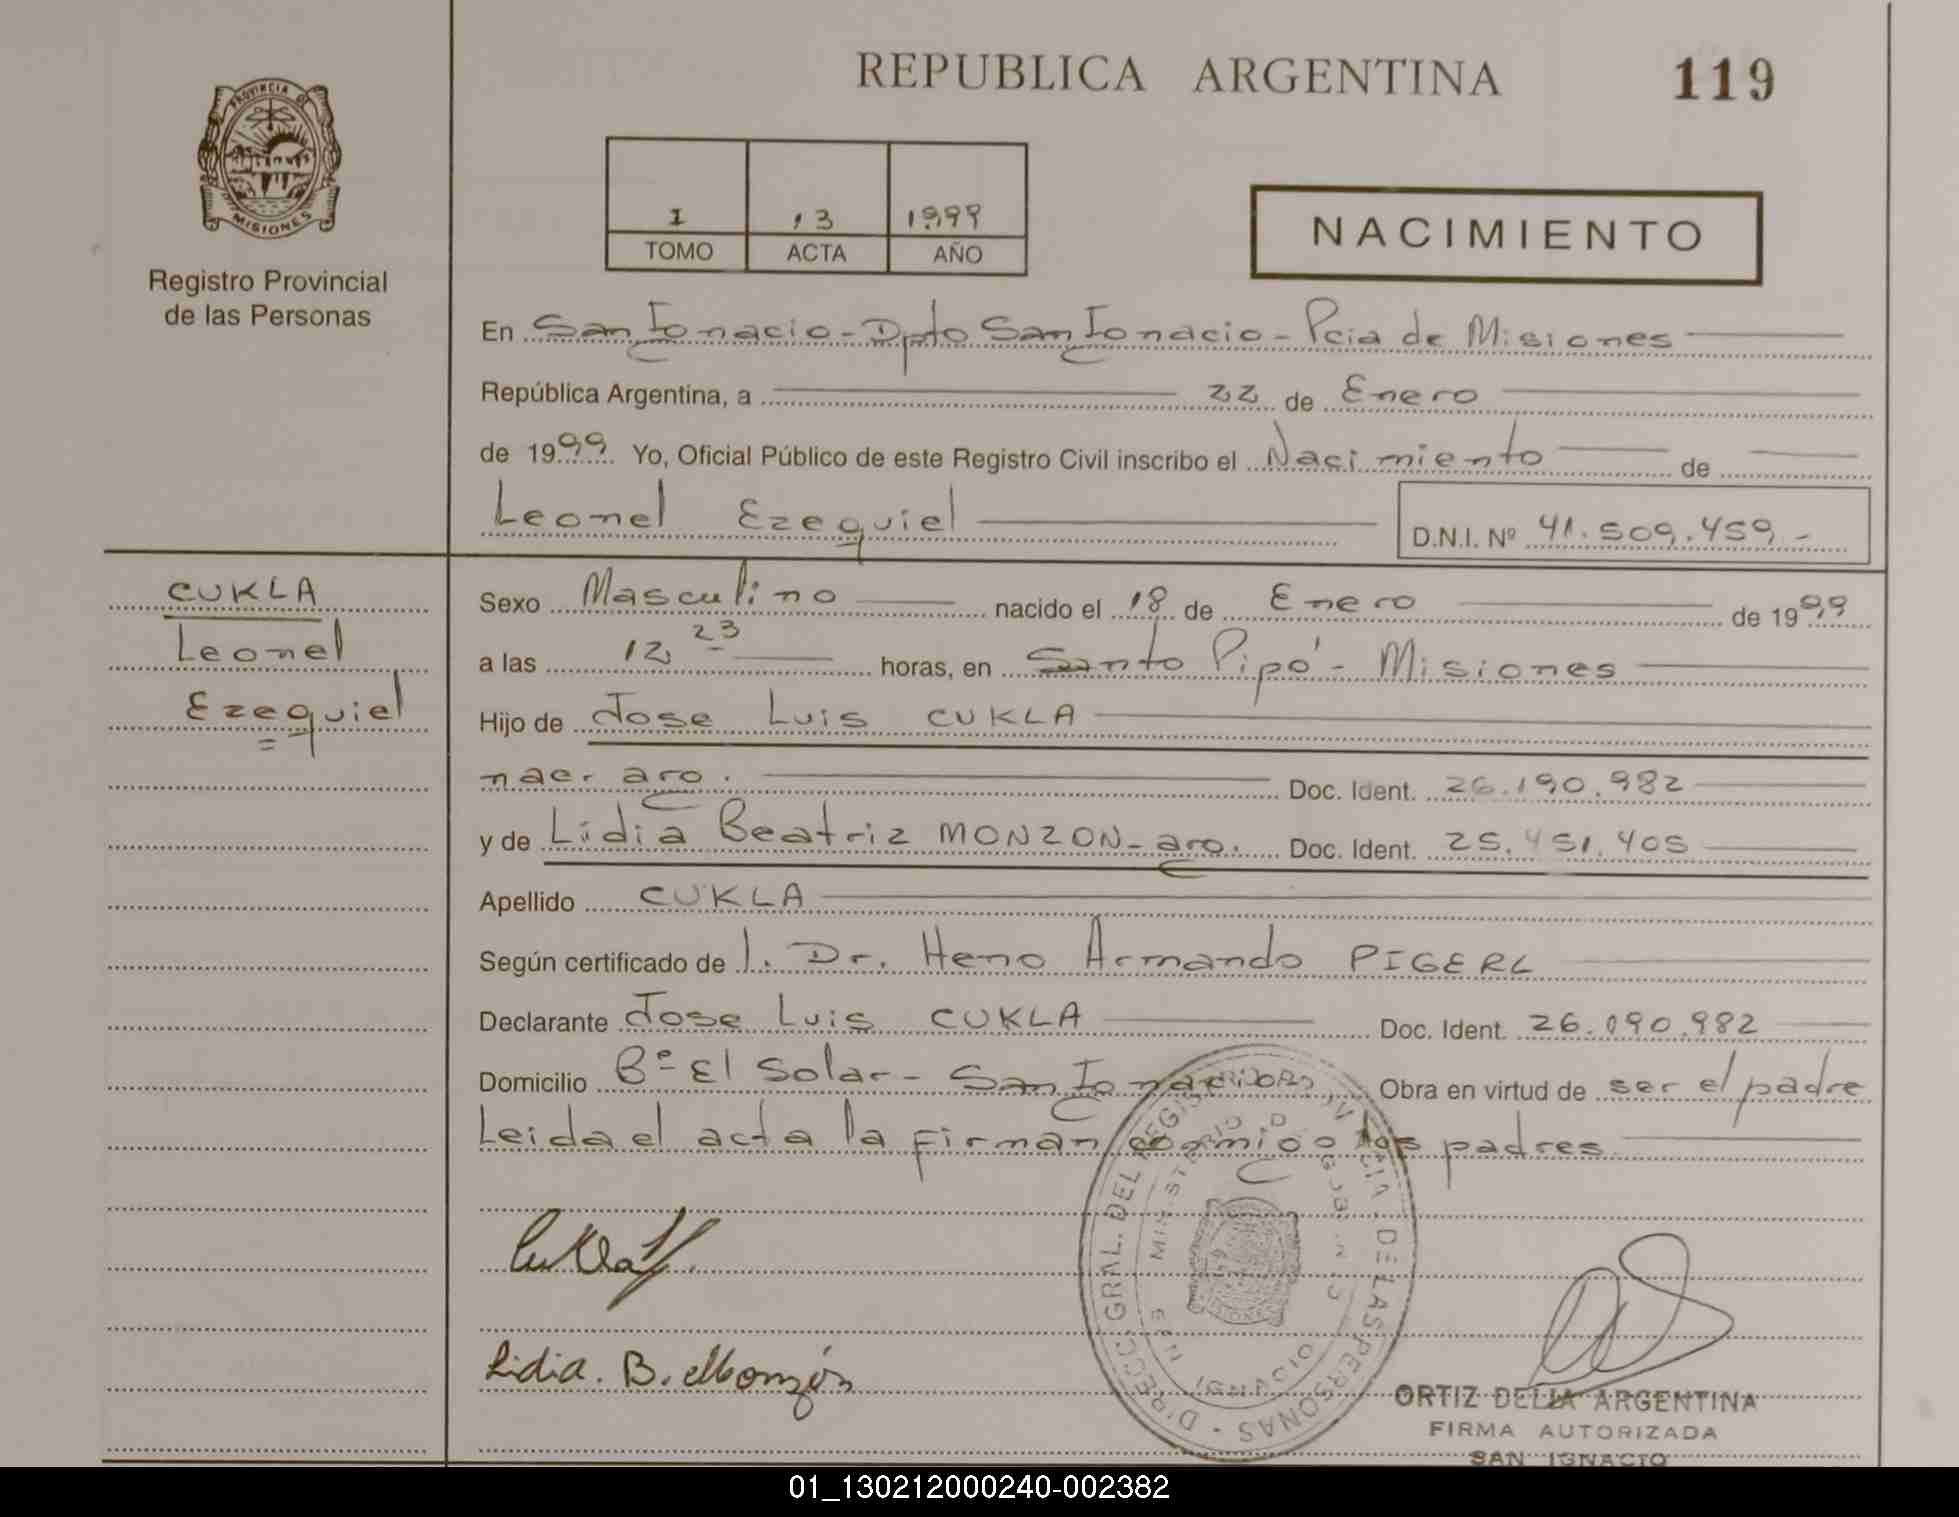 REPUBLICA ARGENTINA
119
PROVINCIA DE
MISIONES
Registro Provincial
de las Personas
I 13 1999
TOMO ACTA AÑO
NACIMIENTO
En San Ignacio - Dpto San Ignacio - Pcia de Misiones
República Argentina, a 22 de Enero
de 1999 Yo, Oficial Público de este Registro Civil inscribo el Nacimiento de
Leonel Ezequiel
D.N.I. Nº 41.509.459.-
CUKLA
Leonel
Ezequiel
Sexo Masculino nacido el 18 de Enero de 1999
a las 12 23 horas, en Santo Pipó - Misiones
Hijo de Jose Luis CUKLA
nac. arg. Doc. Ident. 26.190.982
y de Lidia Beatriz MONZON - arg. Doc. Ident. 25.451.405
Apellido CUKLA
Según certificado de l. Dr. Heno Armando PIGERL
Declarante Jose Luis CUKLA Doc. Ident. 26.190.982
Domicilio Bº El Solar - San Ignacio Obra en virtud de ser el padre
Leida el acta la firman conmigo los padres
Cukla
Lidia. B. Monzón
DIRECC. GRAL. DEL REGISTRO PROVINCIAL DE LAS PERSONAS
MINISTERIO DE GOBIERNO
SAN IGNACIO
MISIONES
ORTIZ DELIA ARGENTINA
FIRMA AUTORIZADA
SAN IGNACIO
01_130212000240-002382